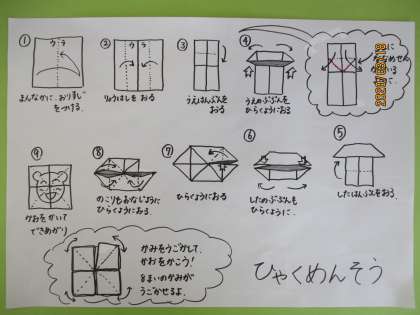 ①
うら
まんなかに、おりすじ
をつける。
②
うら
りょうはしを おる
③
うえはんぶんを
おる
④
うえのぶぶんを
ひらくようにおる
に
ななめせん
⑤
したはんぶんをおる。
⑥
したのぶぶんも
ひらくように。
⑦
ひらくようにおる
⑧
のこりもおなじように
ひらくようにおる。
⑨
かおをかいて
できあがり
かみをうごかして、
かおをかこう!
4まいのかみが
うごかせるよ。
ひゃくめんそう